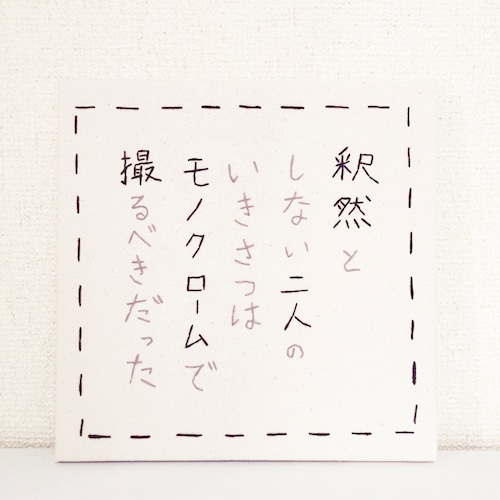 釈然と
しない二人の
いきさつは
モノクロームで
撮るべきだった